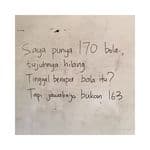 Saya punya 170 bola,
tujuhnya hilang.
Tinggal berapa bola itu?
Tapi jawabnya bukan 163